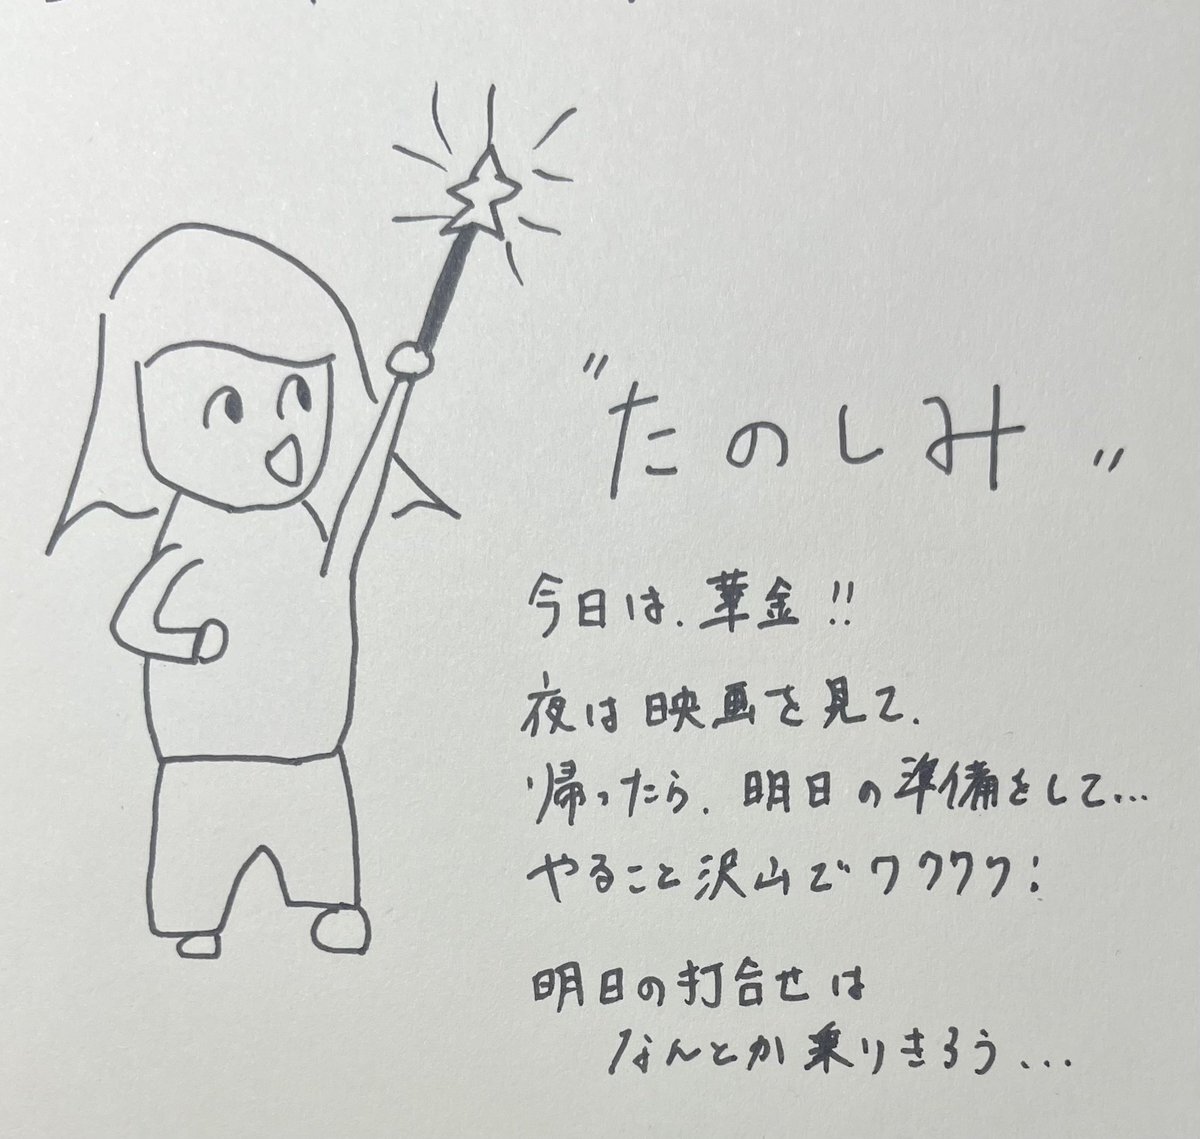 "たのしみ"
今日は、華金!!
夜は映画を見て、
帰ったら、明日の準備をして...
やること沢山でワクワク!
明日の打合せは
なんとか乗りきろう...